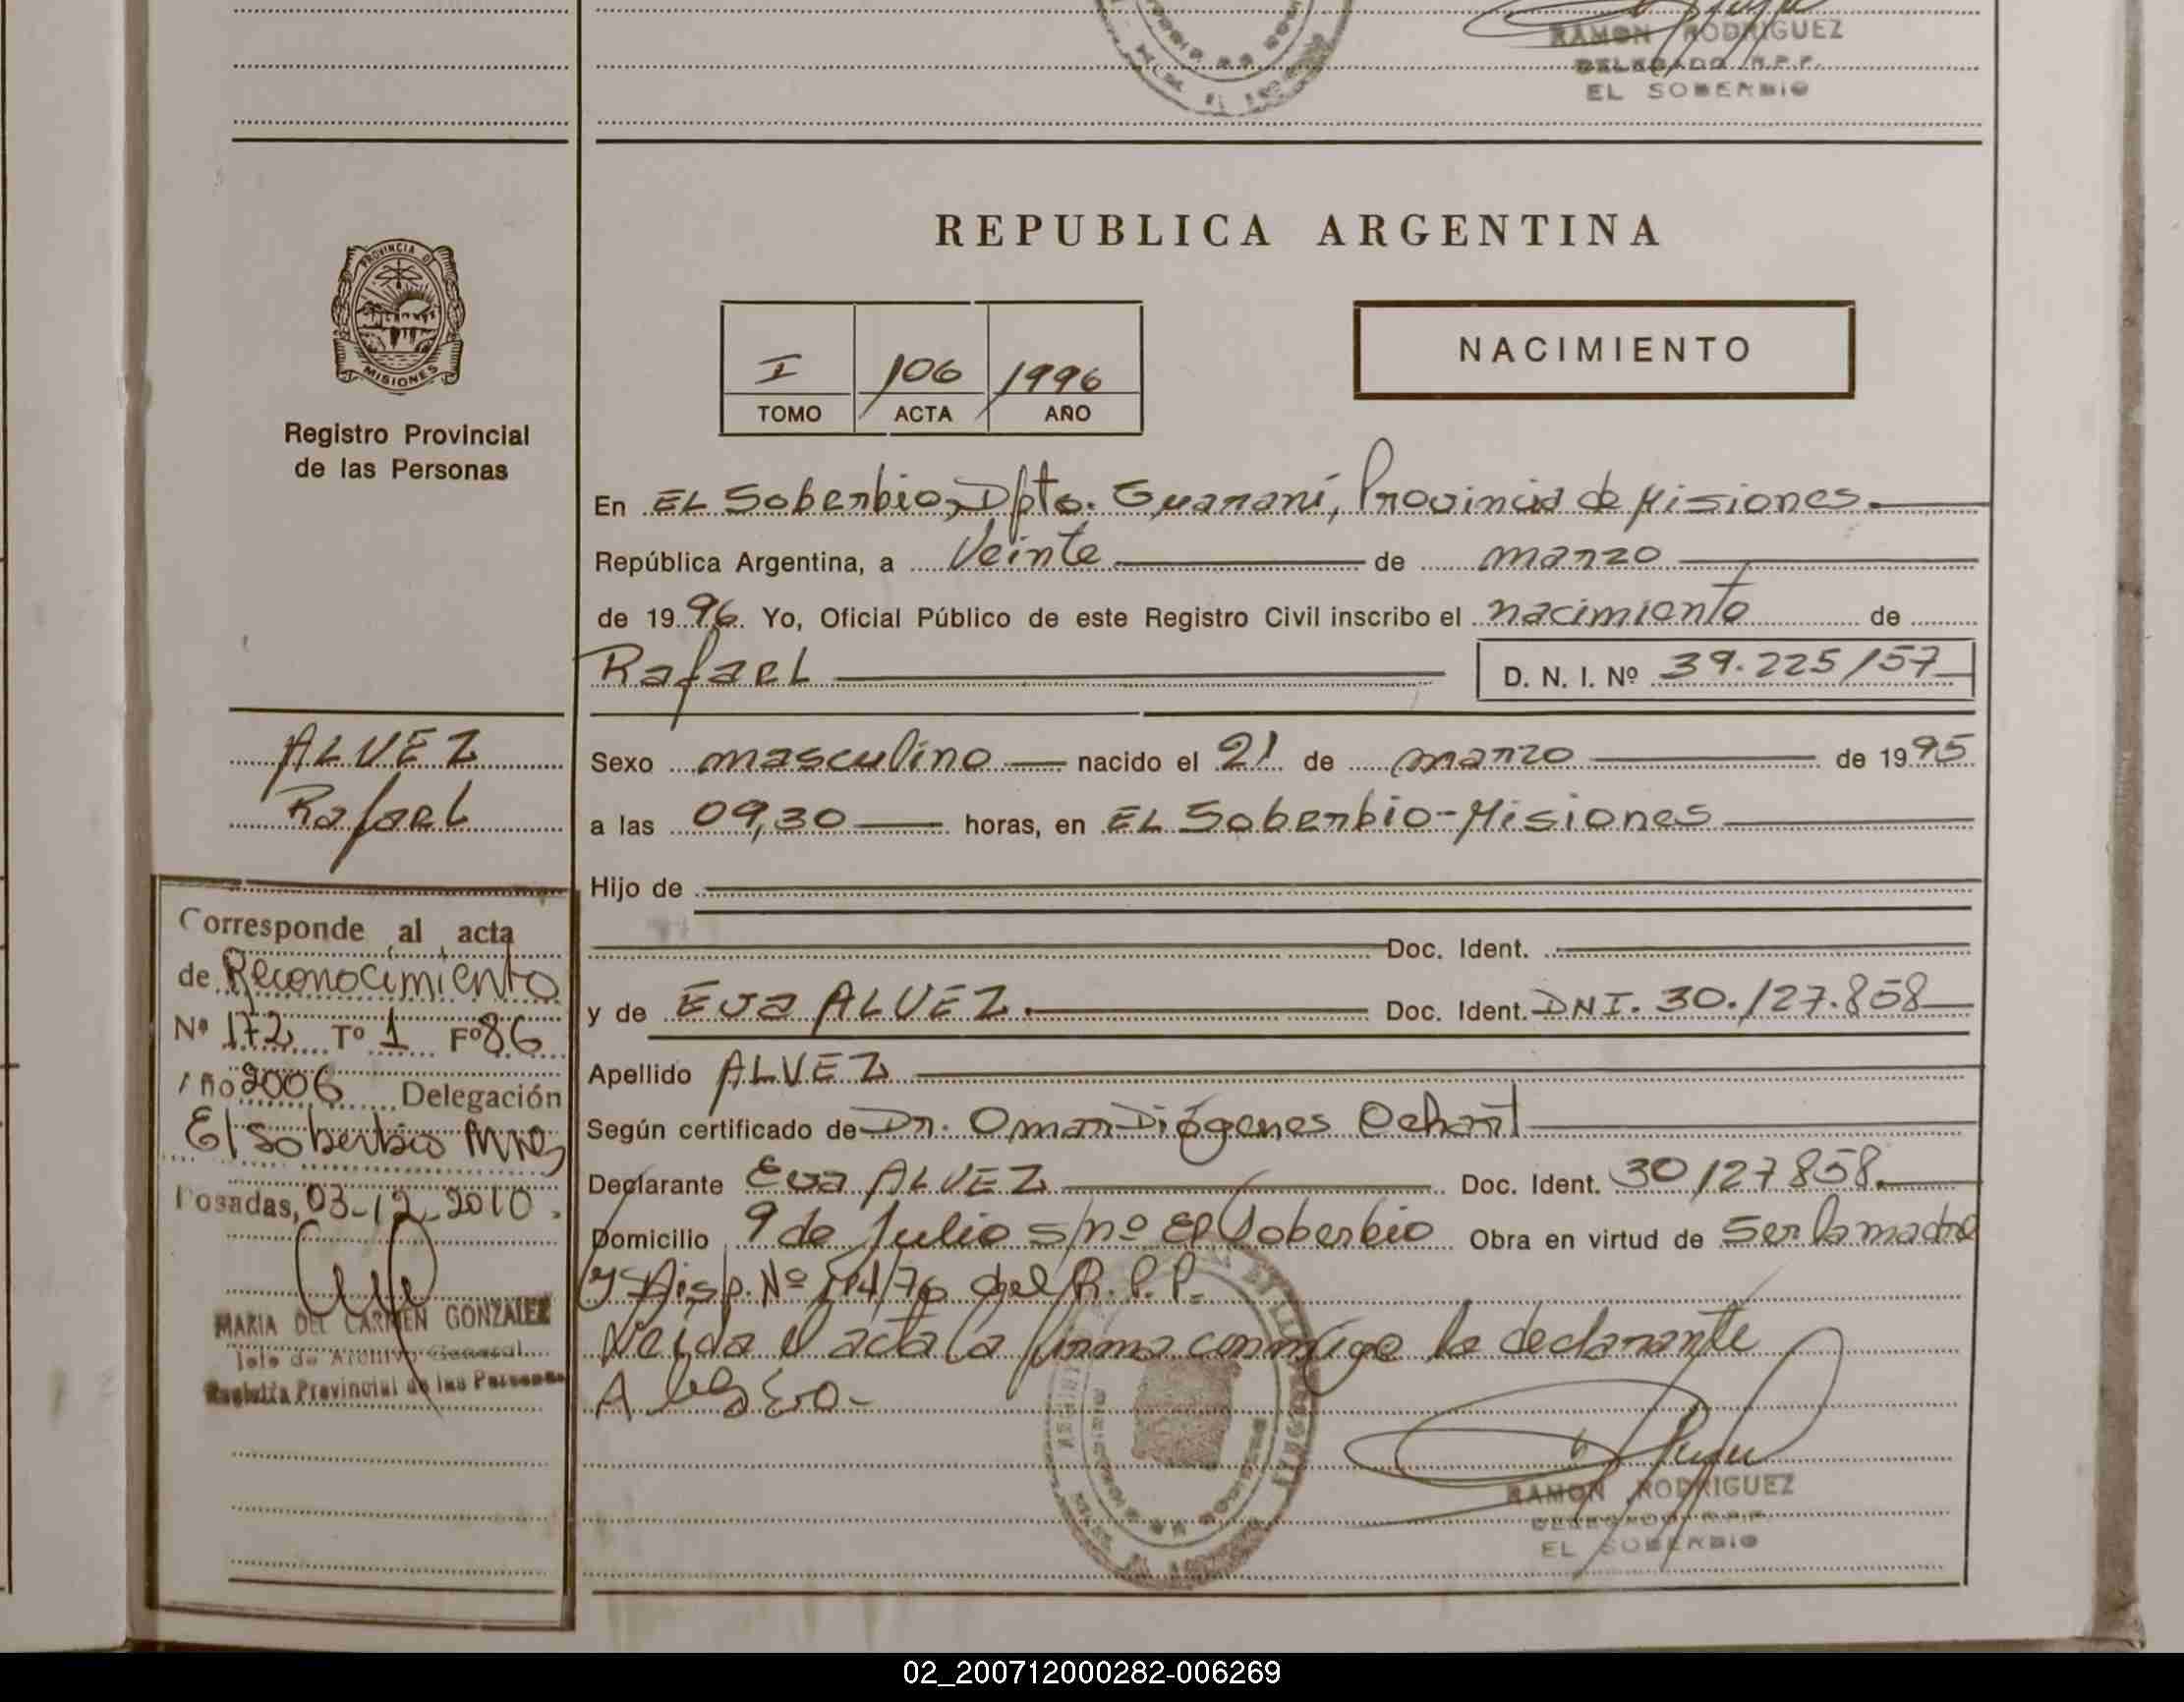 RAMON RODRIGUEZ
DELEGADO R.P.P.
EL SOBERBIO
PROVINCIA DE
MISIONES
Registro Provincial
de las Personas
REPUBLICA ARGENTINA
I 106 1996
TOMO ACTA AÑO
NACIMIENTO
En EL Soberbio, Dpto. Guaraní, Provincia de Misiones.
República Argentina, a Veinte de marzo
de 1996. Yo, Oficial Público de este Registro Civil inscribo el nacimiento de
Rafael D. N. I. Nº 39.225/57
ALVEZ
Rafael
Sexo masculino nacido el 21 de marzo de 1995
a las 09,30 horas, en EL Soberbio-Misiones
Hijo de
Doc. Ident.
y de Eva ALVEZ. Doc. Ident. DNI. 30.127.858
Apellido ALVEZ
Según certificado de Dr. Omar Diógenes
Declarante Eva ALVEZ Doc. Ident. 30127858.
Domicilio 9 de Julio s/nº El Soberbio Obra en virtud de Ser la madre
y Disp. Nº del R.P.P.
Leida el acta la firma conmigo la declarante
Corresponde al acta
de Reconocimiento
Nº 172 Tº 1 Fº 86
Año 2006 Delegación
El Soberbio Mnes
Posadas, 03-12-2010.
MARIA DEL CARMEN GONZALEZ
Jefe de Archivo General
Registro Provincial de las Personas
RAMON RODRIGUEZ
DELEGADO R.P.P.
EL SOBERBIO
02_200712000282-006269